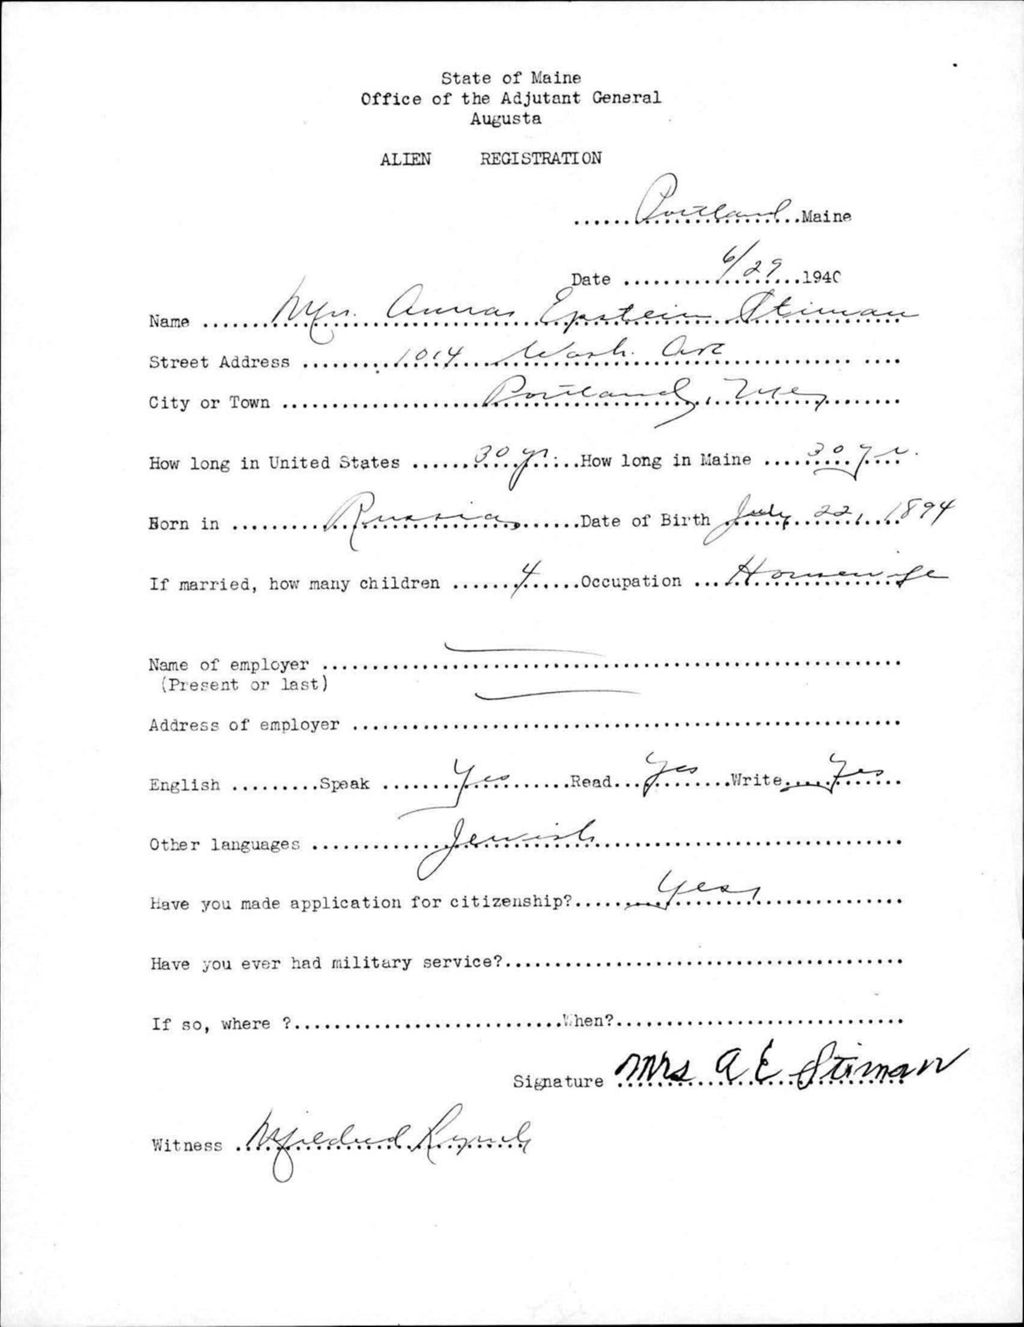 State of Maine
Office of the Adjutant General
Augusta
ALIEN REGISTRATION
......Portland...Maine
Date ............6/29....1940
Name .......Mrs. Anna Epstein Stiman
Street Address ..........1014....Wash. Ave........
City or Town ....................Portland, Me.........
How long in United States ......30 yr....How long in Maine ....30 yr.
Born in ..........Russia........Date of Birth July 22, 1894
If married, how many children ......4.....Occupation ...Housewife
Name of employer ............................................................
(Present or last)
Address of employer ........................................................
English .........Speak ........Yes.......Read...Yes.......Write....Yes....
Other languages .............Jewish...............................
Have you made application for citizenship?......Yes...............
Have you ever had military service?........................................
If so, where ?...........................When?.............................
Signature Mrs A E Stiman
Witness .Mildred